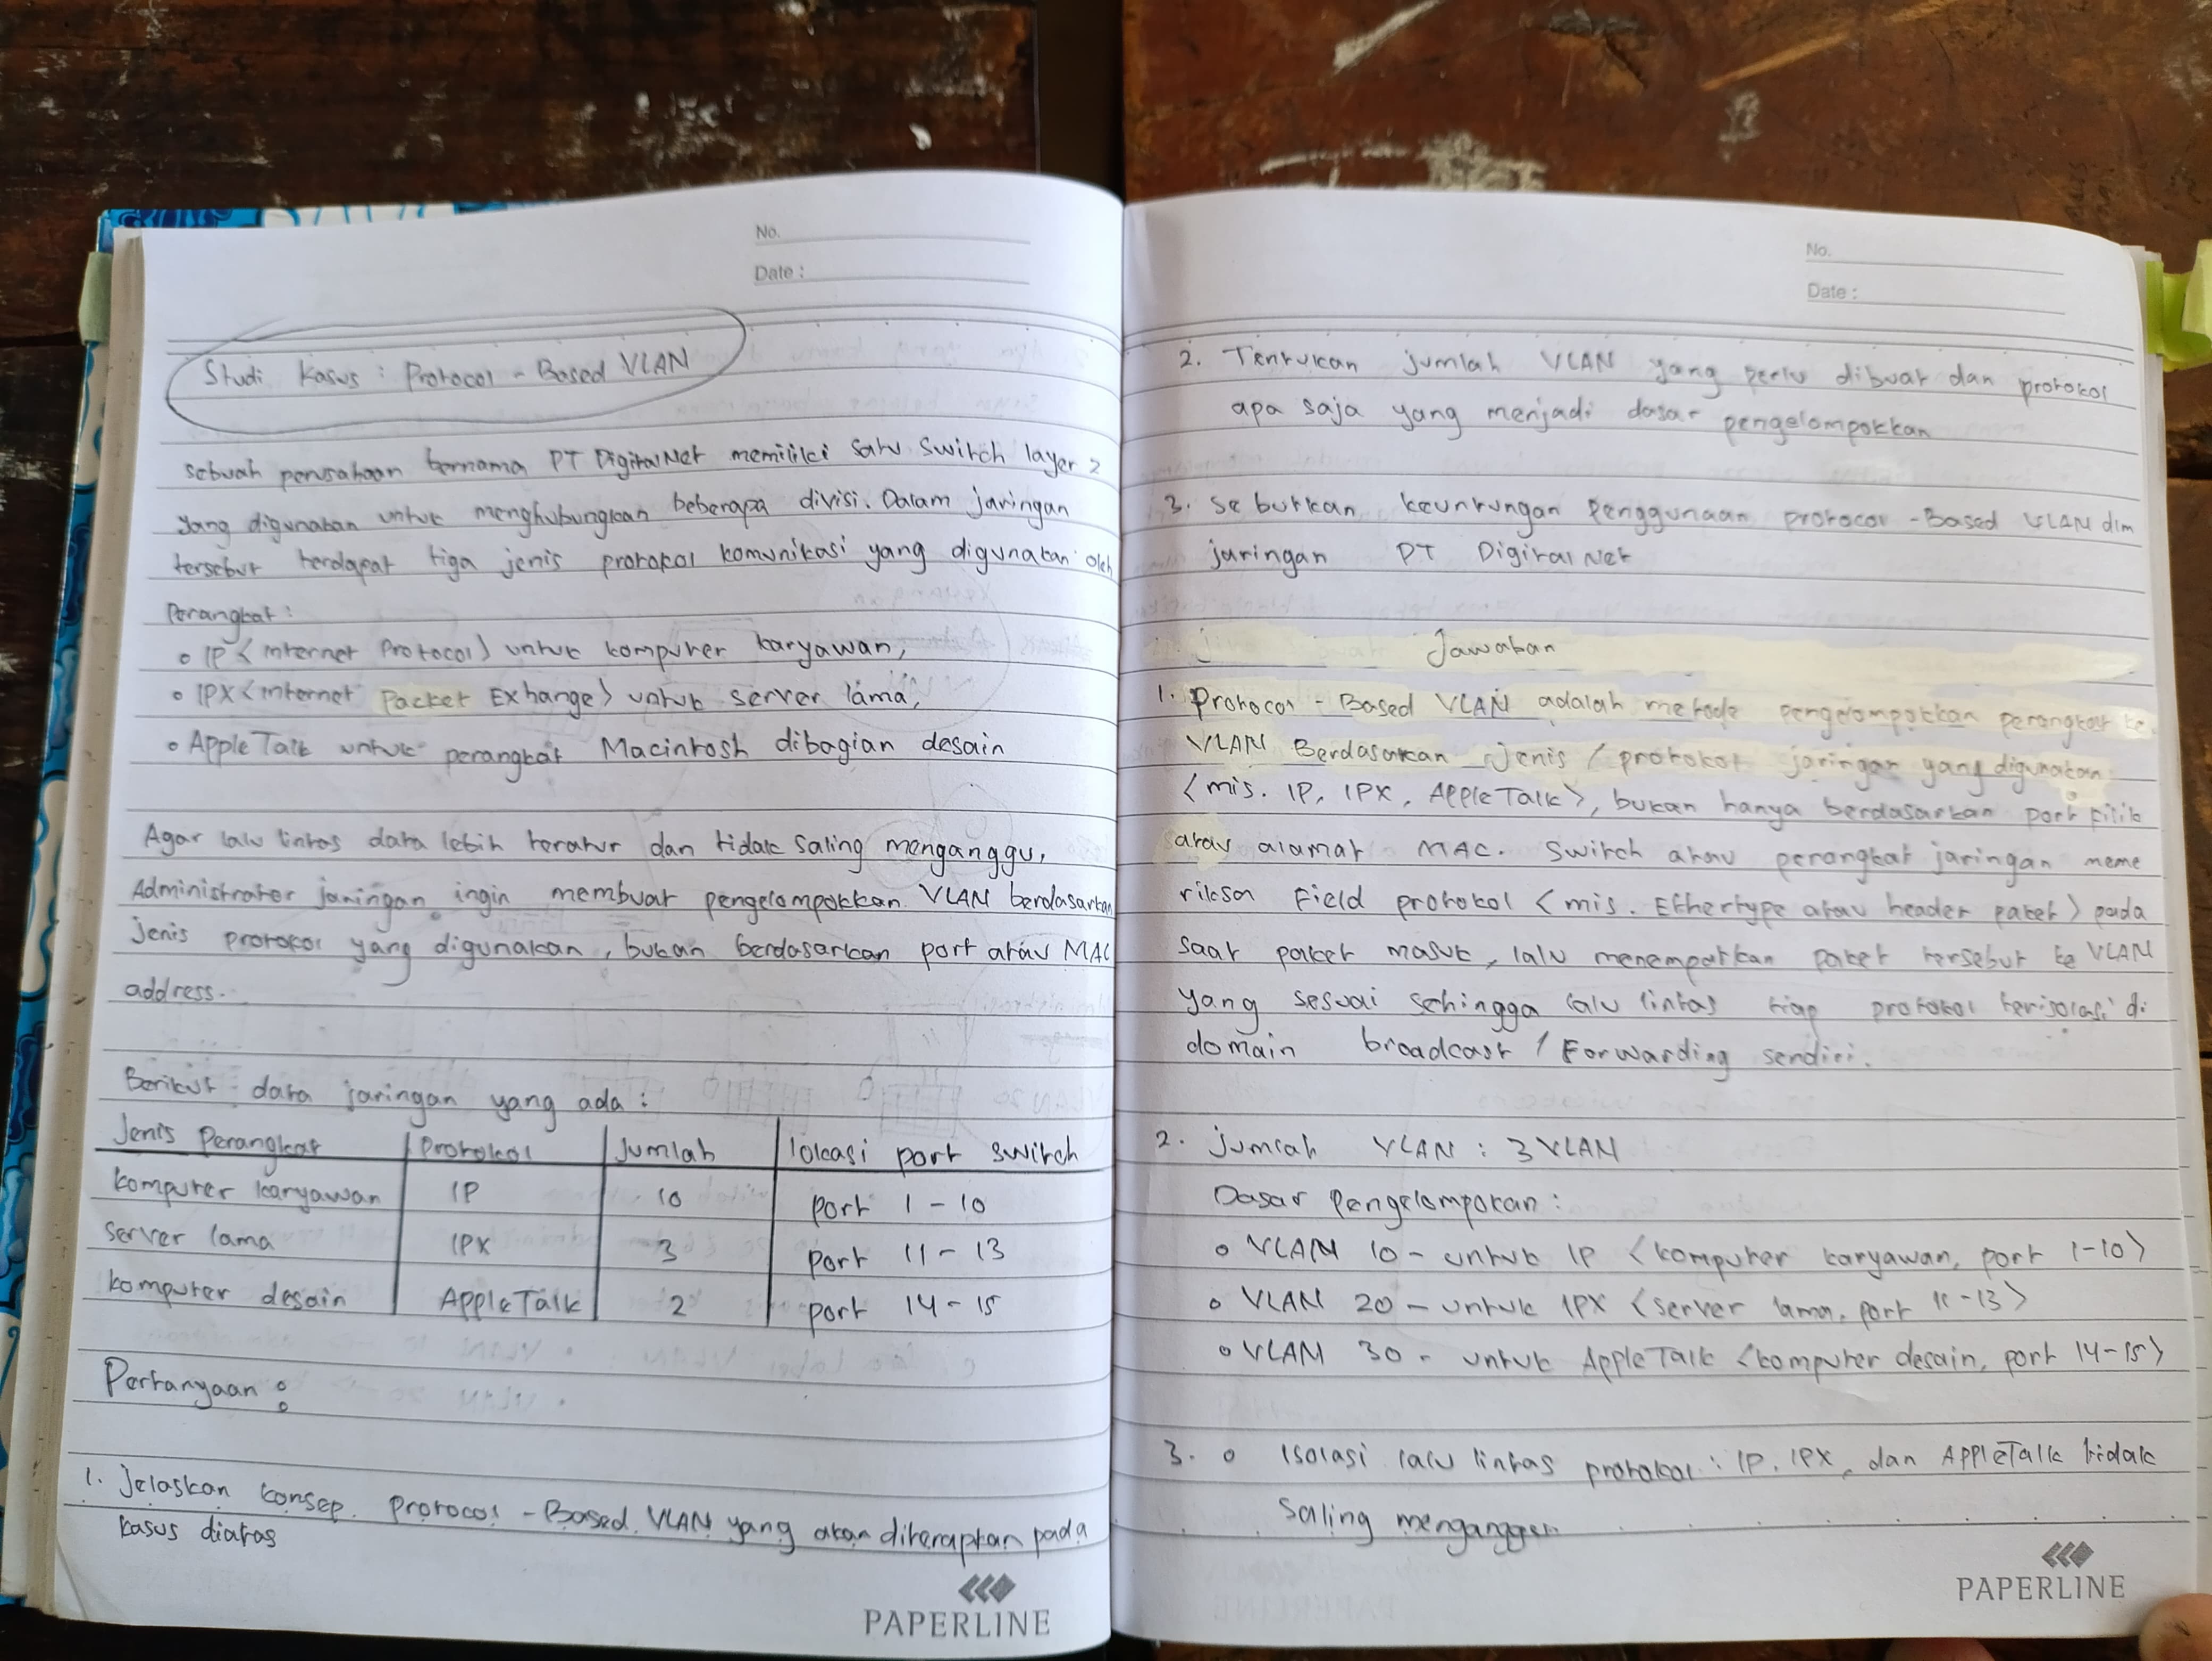 No.
Date :
Studi Kasus : Protocol - Based VLAN
sebuah perusahaan bernama PT DigitalNet memiliki satu switch layer 2
yang digunakan untuk menghubungkan beberapa divisi. Dalam jaringan
tersebut terdapat tiga jenis protokol komunikasi yang digunakan oleh
Perangkat :
o IP < Internet Protocol) untuk komputer karyawan,
o IPX < Internet Packet Exhange > untuk server lama,
o AppleTalk untuk perangkat Macintosh dibagian desain
Agar lalu lintas data lebih teratur dan tidak saling menganggu,
Administrator jaringan ingin membuat pengelompokkan VLAN berdasarkan
jenis protokol yang digunakan, bukan berdasarkan port atau MAC
address.
Berikut data jaringan yang ada :
Jenis Perangkat Protokol Jumlah lokasi port switch
komputer karyawan IP 10 port 1 - 10
server lama IPX 3 port 11 - 13
komputer desain AppleTalk 2 port 14 - 15
Pertanyaan :
1. Jelaskan konsep Protocol - Based VLAN yang akan diterapkan pada
kasus diatas
PAPERLINE
No.
Date :
2. Tentukan jumlah VLAN yang perlu dibuat dan protokol
apa saja yang menjadi dasar pengelompokkan
3. Sebutkan keuntungan Penggunaan protocol - Based VLAN dlm
jaringan PT DigitalNet
Jawaban
1. Protocol - Based VLAN adalah metode pengelompokkan perangkat ke
VLAN Berdasarkan jenis / protokol jaringan yang digunakan
< mis. IP, IPX, AppleTalk >, bukan hanya berdasarkan port fisik
atau alamat MAC. Switch atau perangkat jaringan meme
riksa Field protokol < mis. Ethertype atau header paket > pada
saat paket masuk, lalu menempatkan paket tersebut ke VLAN
yang sesuai sehingga lalu lintas tiap protokol terisolasi di
domain broadcast / Forwarding sendiri.
2. jumlah VLAN : 3 VLAN
Dasar Pengelompokan :
o VLAN 10 - untuk IP < komputer karyawan, port 1-10 >
o VLAN 20 - untuk IPX < server lama, port 11-13 >
o VLAN 30 - untuk AppleTalk < komputer desain, port 14-15 >
3. o Isolasi lalu lintas protokol : IP, IPX, dan AppleTalk tidak
Saling menganggu
PAPERLINE